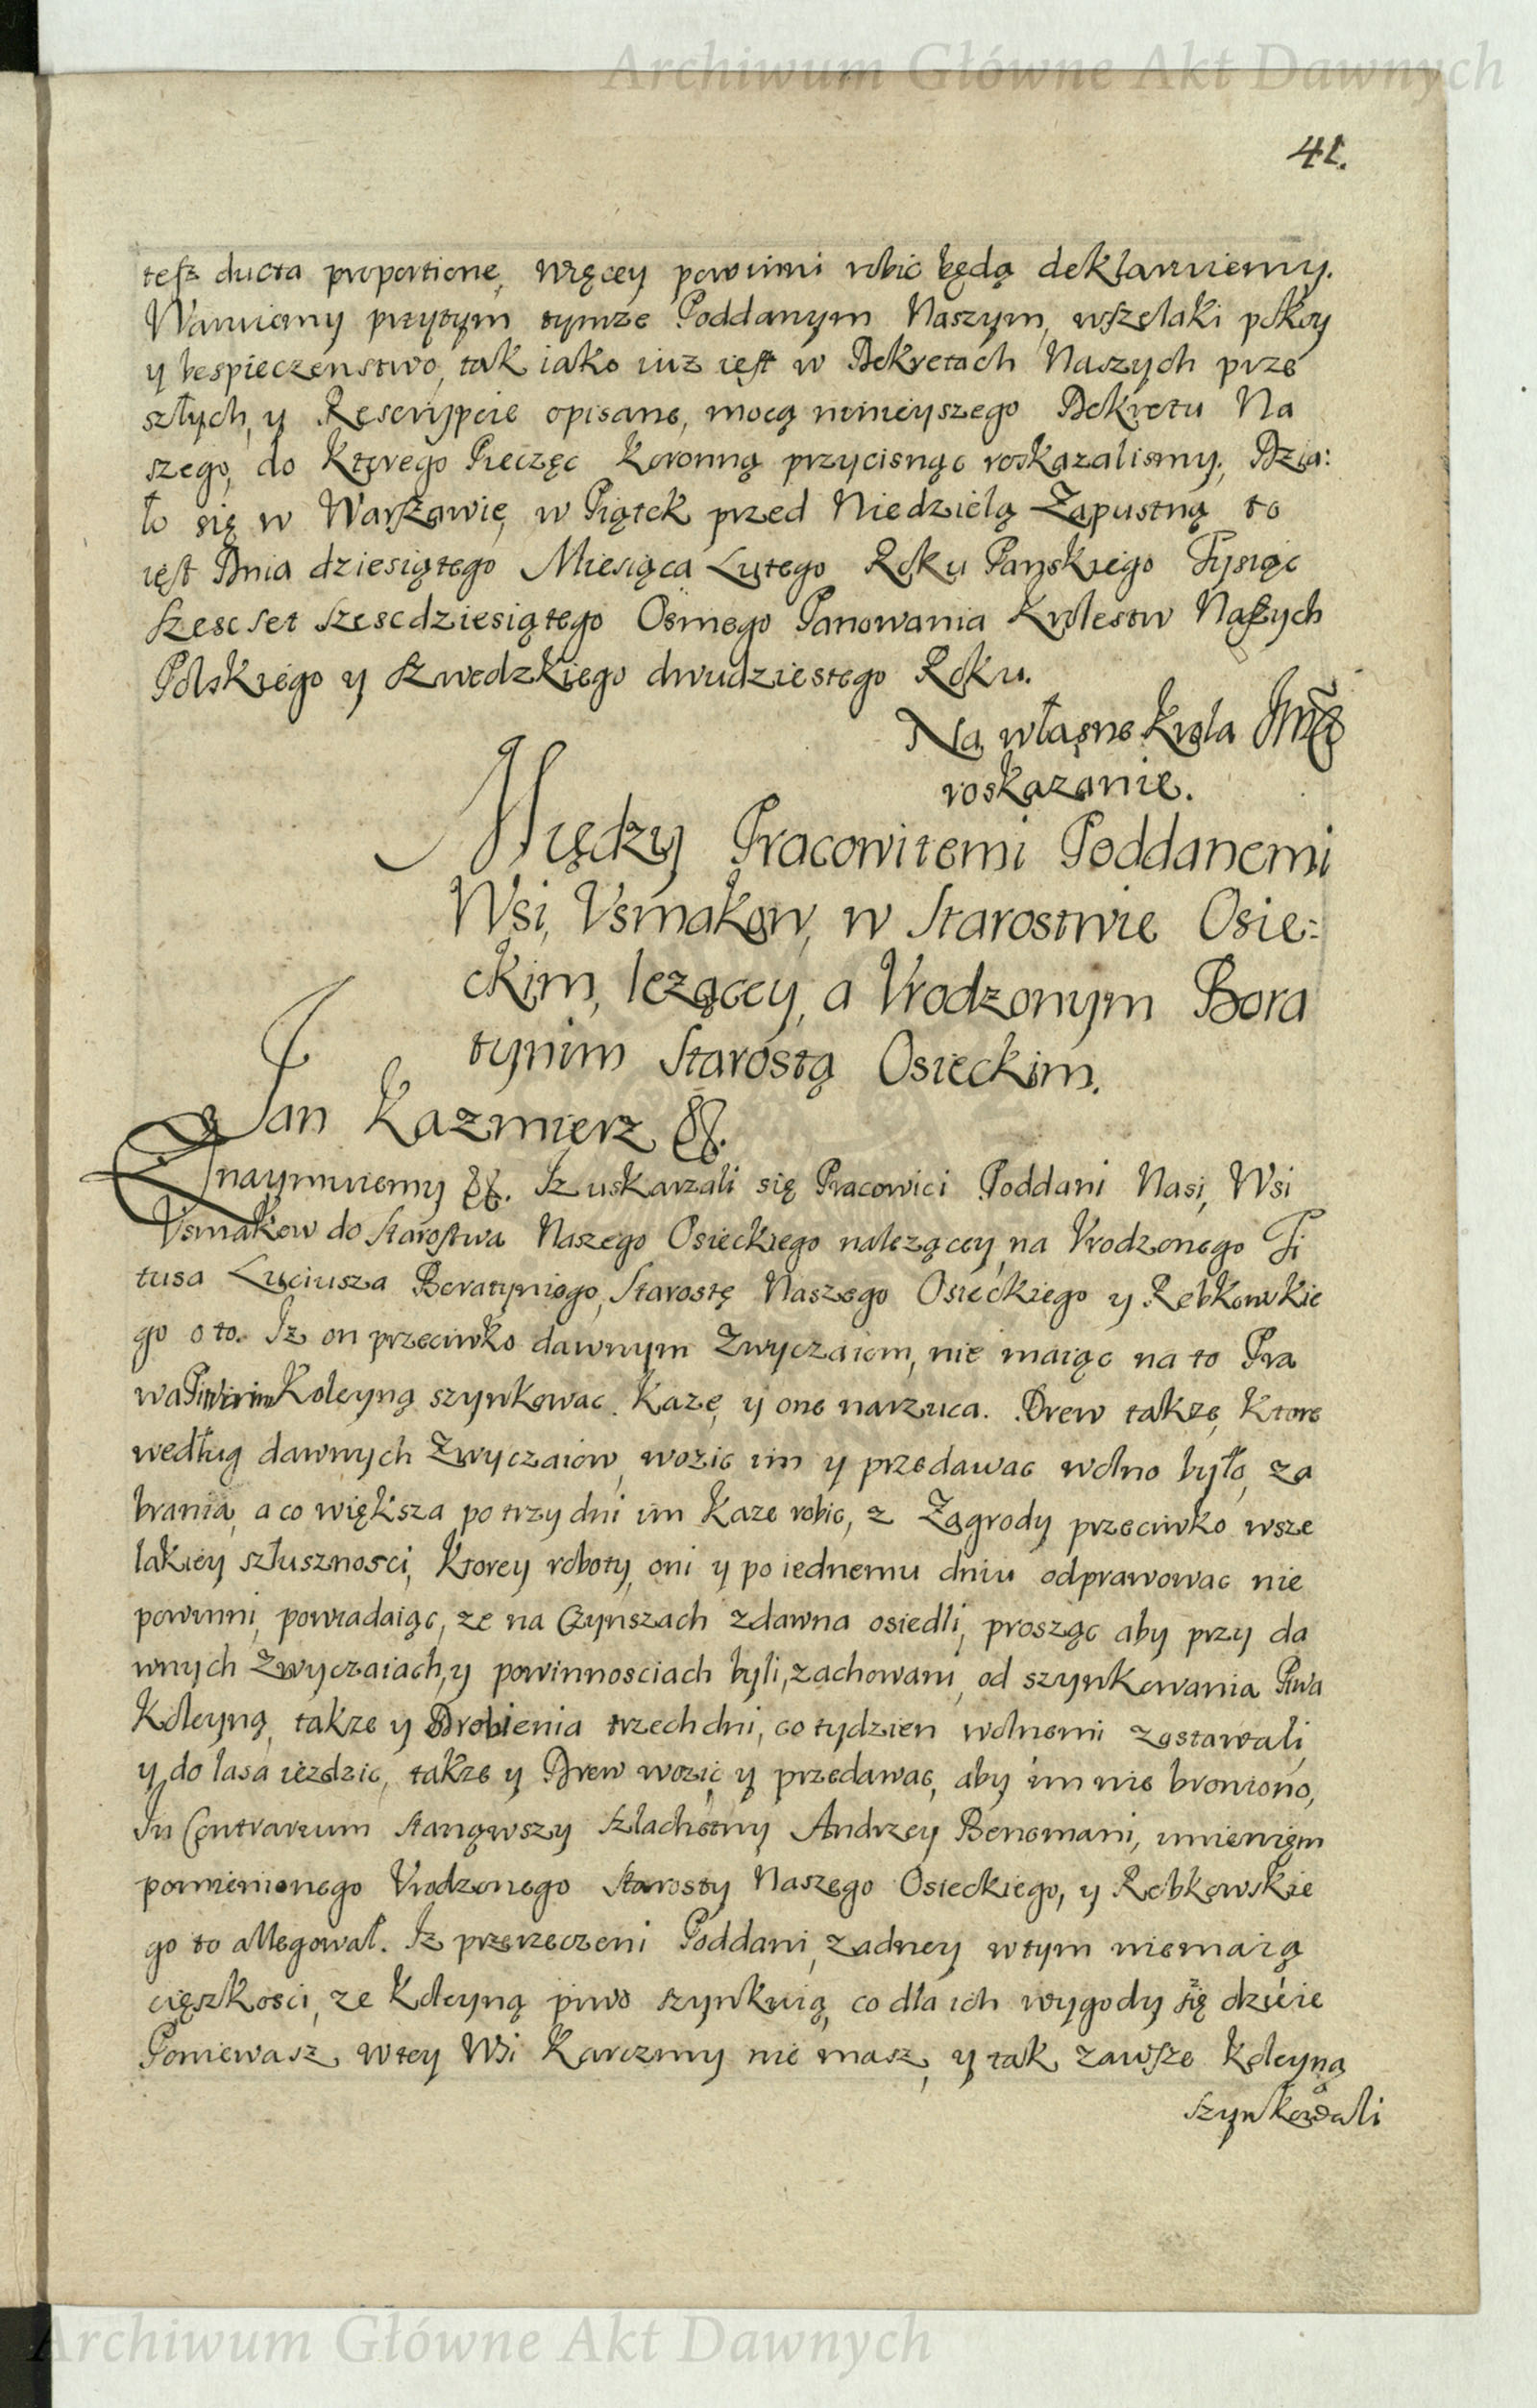 Archiwum Główne Akt Dawnych
41.
tesz ducta proportione, więcey powinni robić będą deklaruiemy.
Waruiemy przytym tymze Poddanym Naszym, wszelaki pokoy
y bespieczenstwo, tak iako iuz iest w Dekretach Naszych prze
szłych, y Rescrypcie opisane, mocą ninieyszego Dekretu Na
szego, do Ktorego Pieczęc Koronną przycisnąc roskazalismy. Dzia:
ło się w Warszawie, w Piątek przed Niedzielą Zapustną to
iest Dnia dziesiątego Miesiąca Lutego Roku Panskiego Tysiąc
szescset szescdziesiątego Osmego Panowania Krolestw Naszych
Polskiego y Szwedzkiego dwudziestego Roku.
Na własne Krola
roskazanie.
Między Pracowitemi Poddanemi
Wsi, Vsmakow, w Starostwie Osie:
ckim, lezącey, a Vrodzonym Bora
tynim Starostą Osieckim.
Jan Kazmierz &.
Znaymuiemy &. Iz uskarzali się Pracowici Poddani Nasi, Wsi
Vsmakow do Starostwa Naszego Osieckiego nalezącey, na Vrodzonego Ti
tusa Luciusza Boratyniego, Starostę Naszego Osieckiego y Rebkowskie
go o to. Iz on przeciwko dawnym Zwyczaiom, nie maiąc na to Pra
wa Koleyną szynkowac Kaze, y one narzuca. Drew takze, Ktore
według dawnych Zwyczaiow, wozic im y przedawac wolno było, za
brania, a co większa po trzy dni im Kaze robic, z Zagrody przeciwko wsze
lakiey słuszności, Ktorey roboty, oni y po iednemu dniu odprawowac nie
powinni, powiadaiąc, ze na Czynszach zdawna osiedli, prosząc aby przy da
wnych Zwyczaiach, y powinnosciach byli, zachowani, od szynkowania Piwa
Koleyną, takze y Drobienia trzech dni, co tydzien wolnemi zostawali,
y do lasa iezdzic, takze y Drew wozic y przedawac, aby im nie broniono,
In Contrarium stanąwszy Szlachetny Andrzey Benemani, imieniem
pomienionego Vrodzonego Starosty Naszego Osieckiego, y Rebkowskie
go to allegował. Iz przerzeczeni Poddani, zadney wtym niemaią
cięszkosci, ze Koleyną piwo szynkuią, co dla ich wygody się dzieie
Poniewasz, wtey Wsi Karczmy nie masz, y tak zawsze Koleyną
szynkowali
Archiwum Główne Akt Dawnych